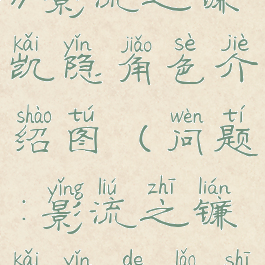 影流之镰
kǎi yǐn jiǎo sè jiè
凯隐角色介
shào tú wèn tí
绍图（问题
yǐng liú zhī lián
：影流之镰
kǎi yǐn de lǎo shī